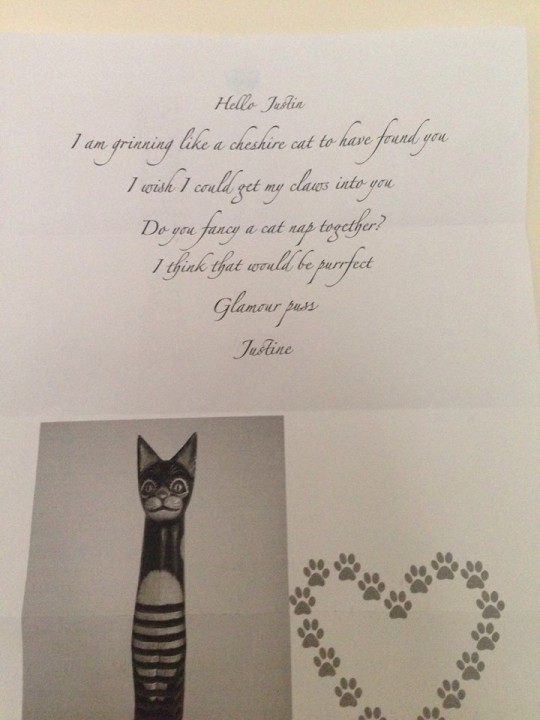 Hello Justin
I am grinning like a cheshire cat to have found you
I wish I could get my claws into you
Do you fancy a cat nap together?
I think that would be purrfect
Glamour puss
Justine